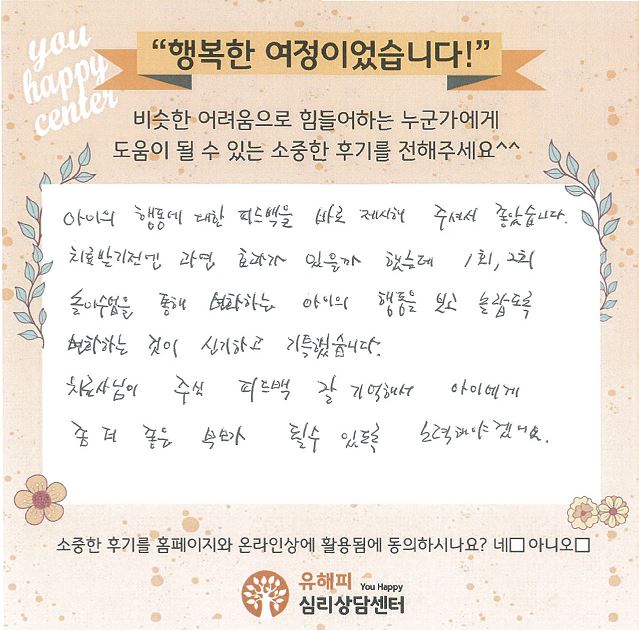 you
happy
center
“행복한 여정이었습니다!”
비슷한 어려움으로 힘들어하는 누군가에게
도움이 될 수 있는 소중한 후기를 전해주세요^^
아이의 행동에 대한 피드백을 바로 제시해 주셔서 좋았습니다.
치료받기전엔 과연 효과가 있을까 했는데 1회, 2회
놀이수업을 통해 변화하는 아이의 행동을 보고 놀랍도록
변화하는 것이 신기하고 기특했습니다.
치료사님이 주신 피드백 잘 기억해서 아이에게
좀 더 좋은 부모가 될수 있도록 노력해야겠어요.
소중한 후기를 홈페이지와 온라인상에 활용됨에 동의하시나요? 네□ 아니오□
유해피 You Happy
심리상담센터